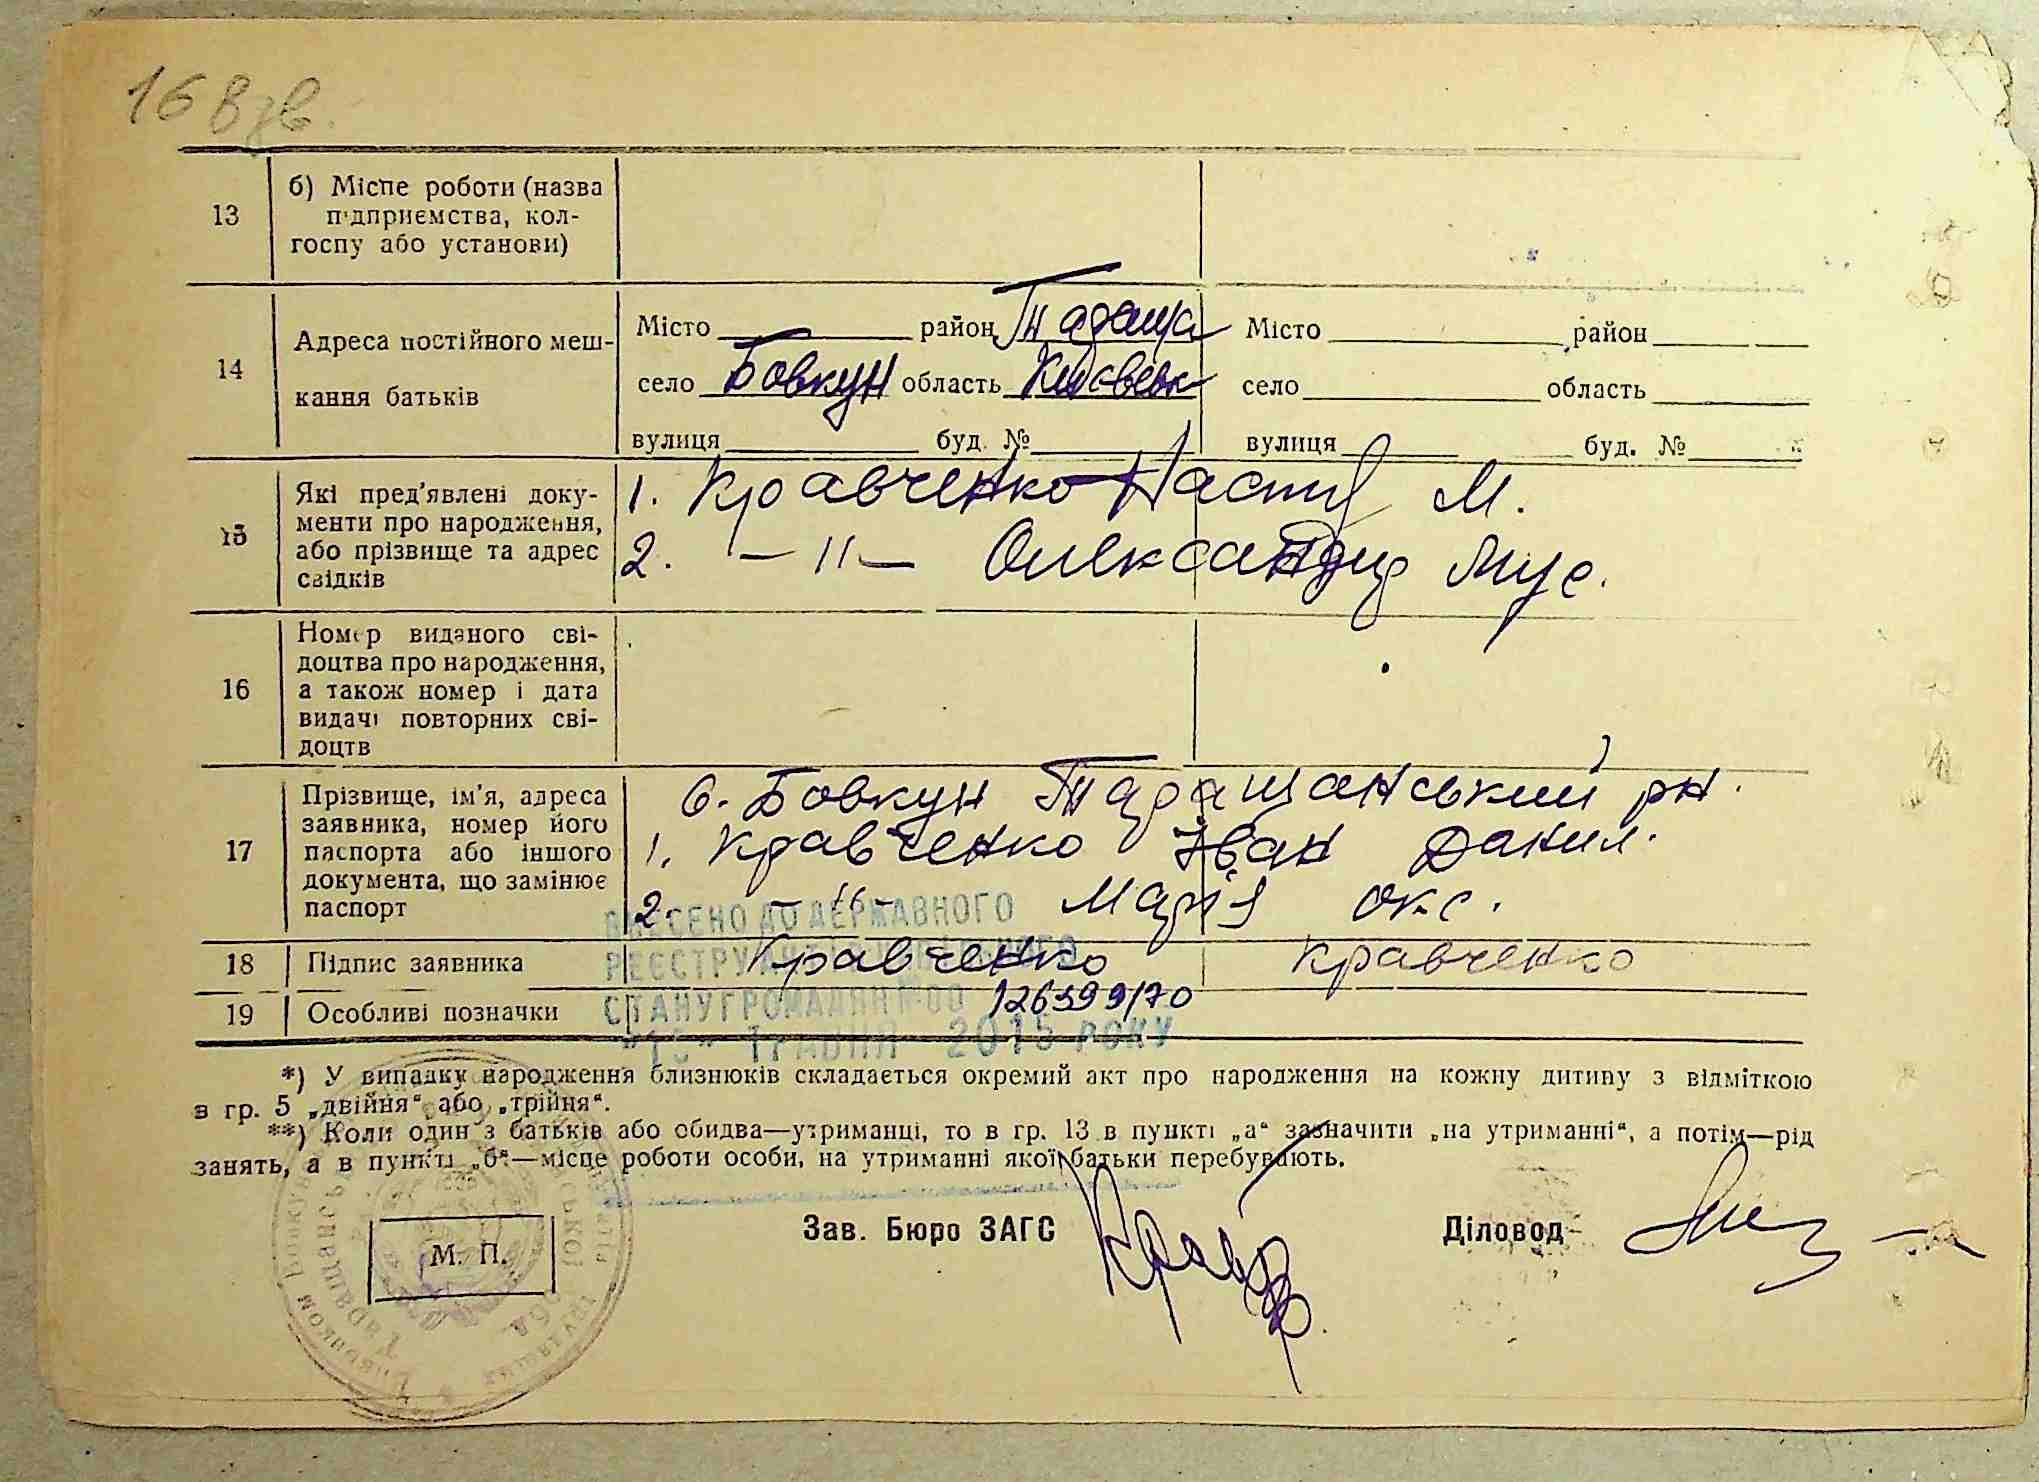 168 зв.
13
б) Місце роботи (назва
підприємства, кол-
госпу або установи)
14
Адреса постійного меш-
кання батьків
Місто район Тараща
село Бовкун область Києвськ
вулиця буд. №
Місто район
село область
вулиця буд. №
15
Які пред'явлені доку-
менти про народження,
або прізвище та адрес
свідків
1. Кравченко Настя М.
2. –〃– Олександр Мус.
16
Номер виданого сві-
доцтва про народження,
а також номер і дата
видачі повторних сві-
доцтв
17
Прізвище, ім'я, адреса
заявника, номер його
паспорта або іншого
документа, що замінює
паспорт
с. Бовкун Таращанський рн.
1. Кравченко Іван Данил.
2. –〃– Марія Окс.
18
Підпис заявника
Кравченко Кравченко
19
Особливі позначки
ВНЕСЕНО ДО ДЕРЖАВНОГО
РЕЄСТРУ АКТІВ ЦИВІЛЬНОГО
СТАНУ ГРОМАДЯН №00 126399/70
"15" травня 2015 РОКУ
*) У випадку народження близнюків складається окремий акт про народження на кожну дитину з відміткою
в гр. 5 „двійня“ або „трійня“.
**) Коли один з батьків або обидва—утриманці, то в гр. 13 в пункті „а“ зазначити „на утриманні“, а потім—рід
занять, а в пункті „б“—місце роботи особи, на утриманні якої батьки перебувають.
М. П.
Зав. Бюро ЗАГС
Діловод